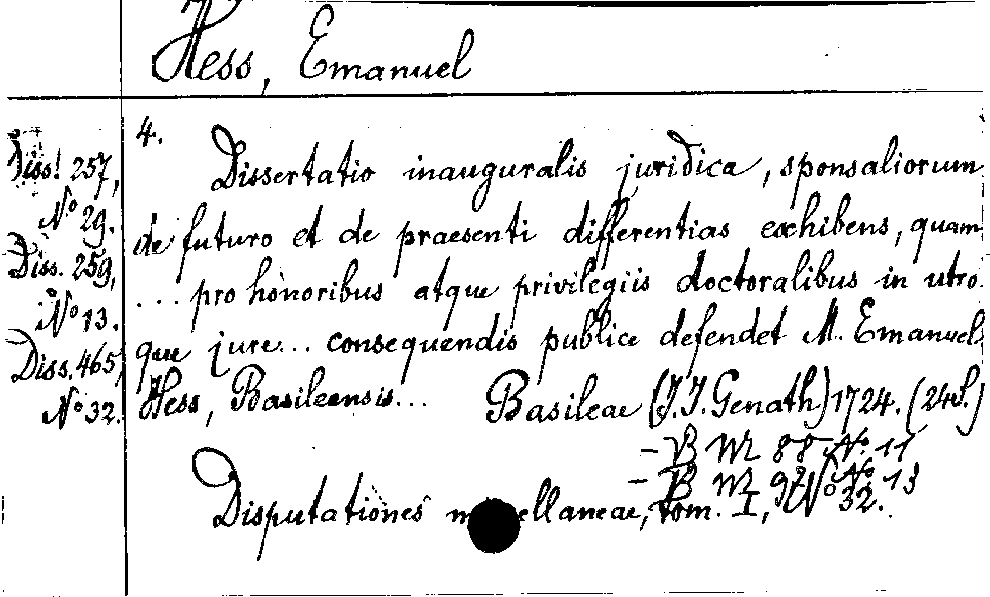 Hess, Emanuel
4.
Diss. 257,
N° 29.
Diss. 259,
N° 13.
Diss. 465,
N° 32.
Dissertatio inauguralis juridica, sponsaliorum
de futuro et de praesenti differentias exhibens, quam
... pro honoribus atque privilegiis doctoralibus in utro-
que jure... consequendis publice defendet M. Emanuel
Hess, Basileensis... Basileae (J.J. Genath) 1724. (24S.)
- B M 88 N° 11
- B M 92 N° 13
Disputationes miscellaneae, tom. I, N° 32.